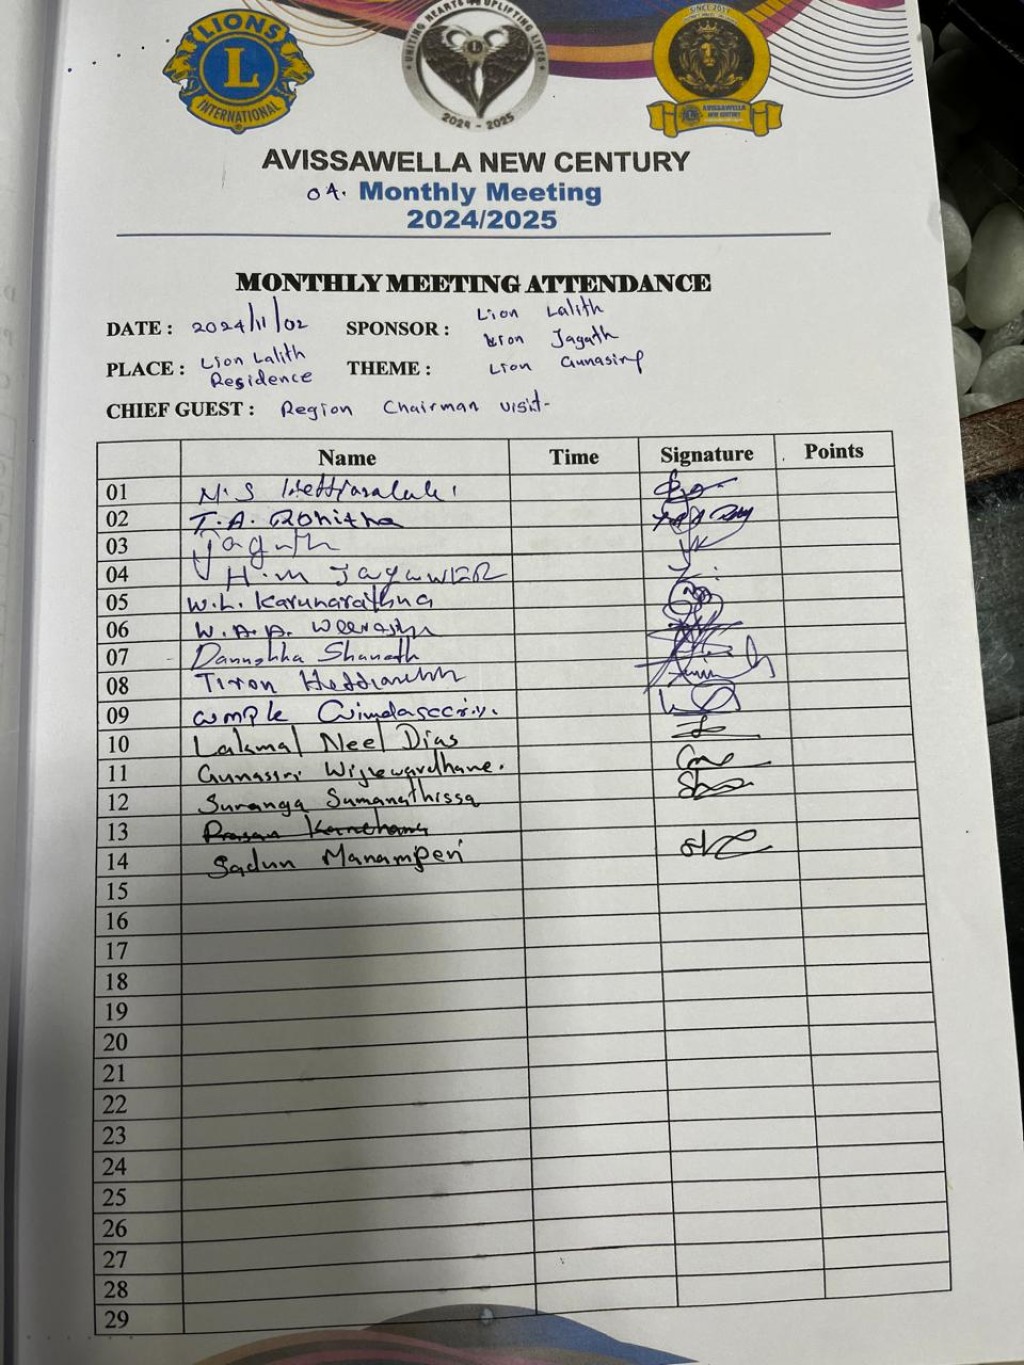 LIONS
L
INTERNATIONAL
UNITING HEARTS UPLIFTING LIVES
L
2024 - 2025
SINCE 2017
AVISSAWELLA
NEW CENTURY
AVISSAWELLA NEW CENTURY
04. Monthly Meeting
2024/2025
MONTHLY MEETING ATTENDANCE
DATE : 2024/11/02 SPONSOR : Lion Lalith
Lion Jagath
PLACE : Lion Lalith Residence THEME : Lion Gunasiri
CHIEF GUEST : Region Chairman visit-
Name Time Signature Points
01 M.S
02 T.A. Rohitha
03 Jagath
04 H.M
05 W.L. Karunarathna
06 W.A.A.
07 Danushka
08 Tiron
09
10 Lakmal Neel Dias
11 Gunasiri Wijewardhane.
12 Suranga Sumanathissa
13
14 Sadun Manamperi
15
16
17
18
19
20
21
22
23
24
25
26
27
28
29